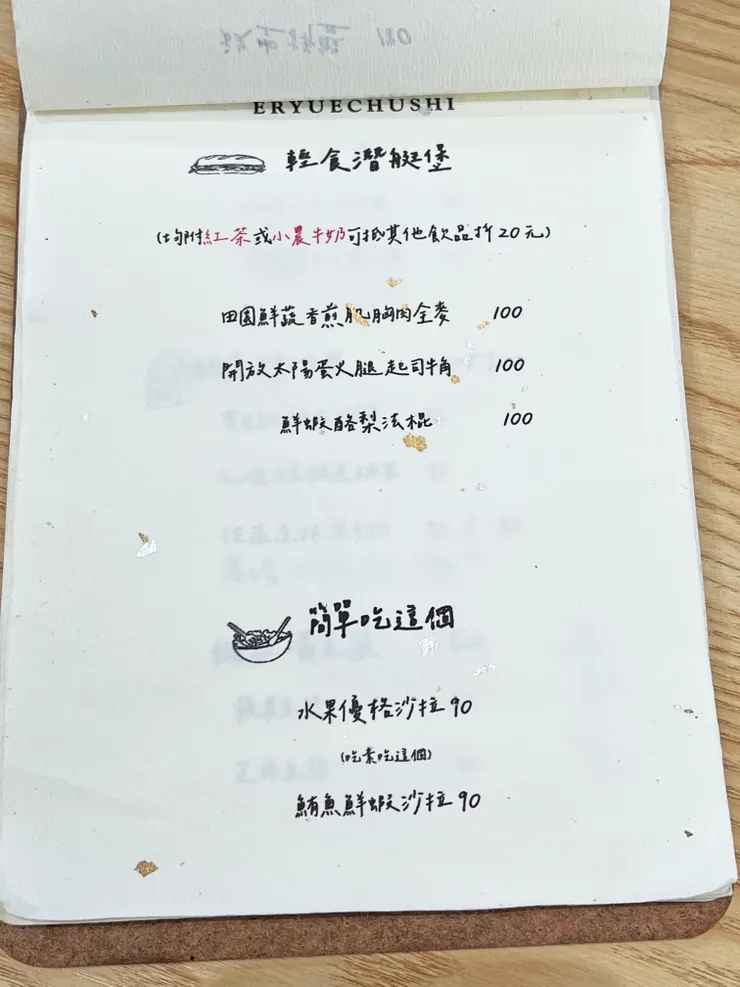 ERYUECHUSHI
輕食潛艇堡
(均附紅茶或小農牛奶可抵其他飲品折20元)
田園鮮蔬香煎肌胸肉全麥 100
開放太陽蛋火腿起司牛角 100
鮮蝦酪梨法棍 100
簡單吃這個
水果優格沙拉 90
(吃素吃這個)
鮪魚鮮蝦沙拉 90